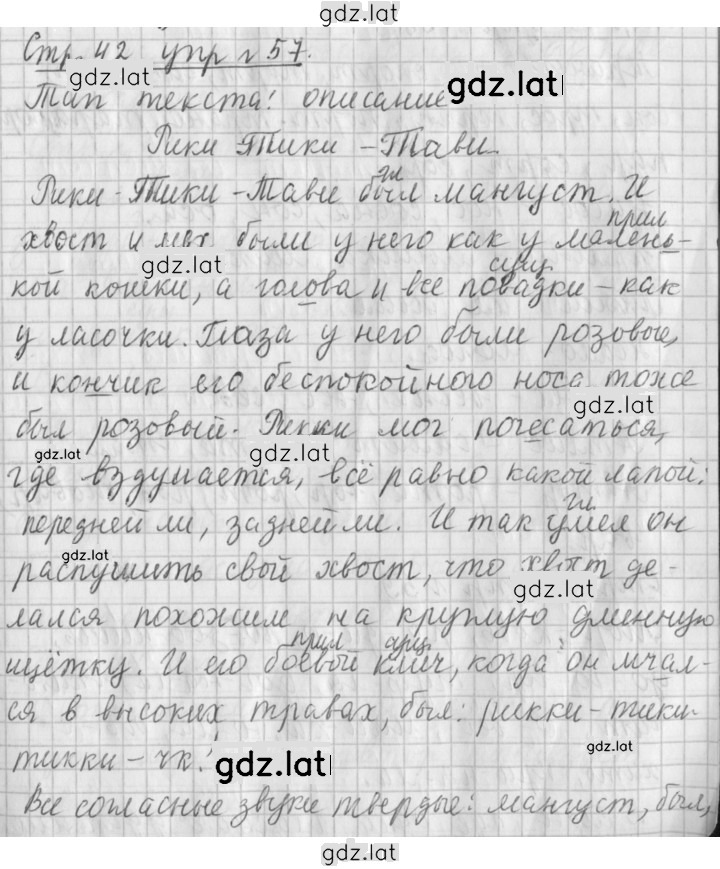 gdz.lat
Стр. 42 упр № 57.
gdz.lat
Тип текста: описание
gdz.lat
Рики Тики - Тави.
Рики - Тики - Тави был мангуст. И
гл.
хвост и мех были у него как у малень-
прил
gdz.lat
кой кошки, а голова и все повадки - как
сущ.
у ласочки. Глаза у него были розовые,
и кончик его беспокойного носа тоже
gdz.lat
был розовый. Рикки мог почесаться,
gdz.lat
gdz.lat
где вздумается, всё равно какой лапой:
передней ли, задней ли. И так умел он
гл.
gdz.lat
распушить свой хвост, что хвост де-
gdz.lat
лался похожим на круглую длинную
щётку. И его боевой клич, когда он мчал-
прил сущ
ся в высоких травах, был: рикки - тики
gdz.lat
тикки - чк!
gdz.lat
Все согласные звуки твердые: мангуст, был,
gdz.lat